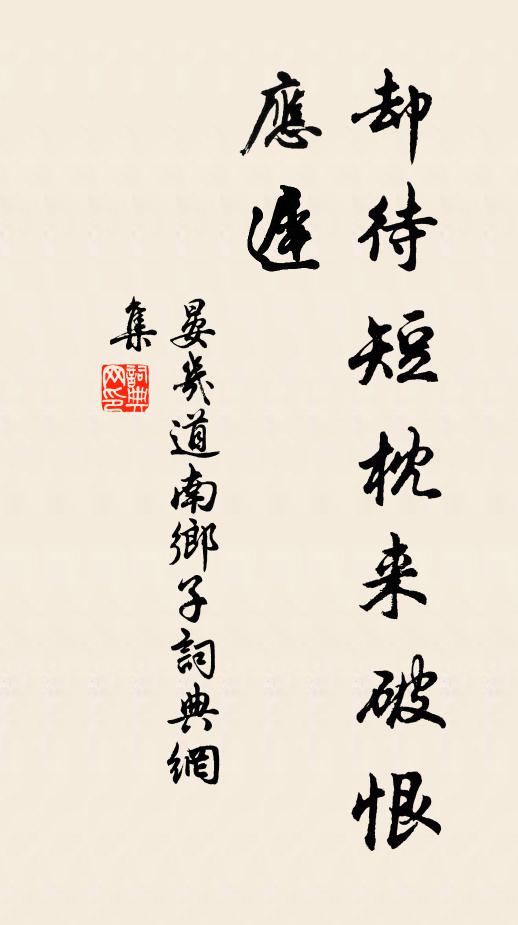 却待短枕来破恨
應遲
晏幾道南鄉子詞典網
集
詞典
网印